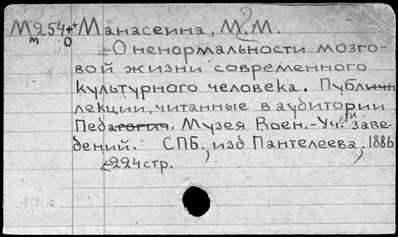 М254 Манасеина, М.М.
О ненормальности мозго-
вой жизни современного
культурного человека. Публичн
лекции, читанные в аудитории
Педагогич. Музея Воен.-Уч. заве-
дений. СПБ, изд Пантелеева, 1886
224 стр.